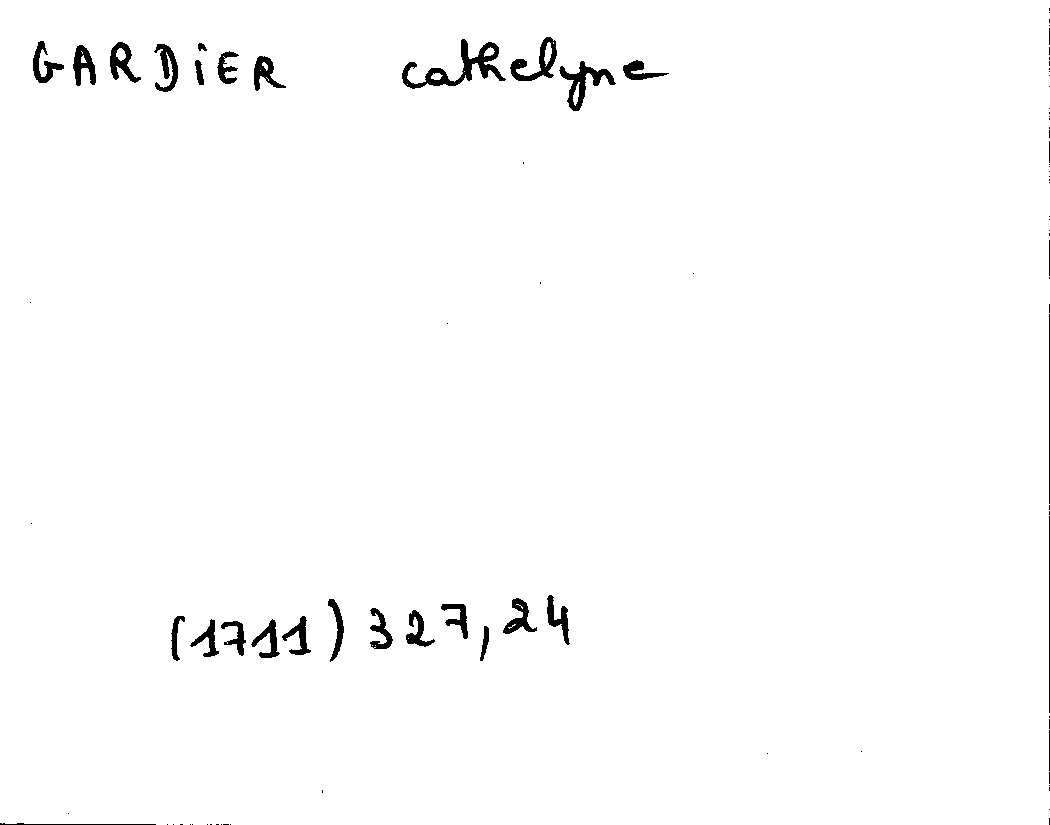 GARDiER cathelyne
(1711) 327,24